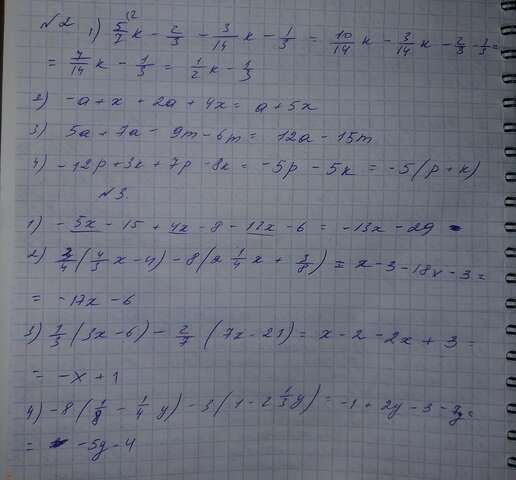 №2 1) 5/7 k - 2/3 - 3/14 k - 1/3 = 10/14 k - 3/14 k - 2/3 - 1/3 =
= 7/14 k - 1/3 = 1/2 k - 1/3
2) -a + x + 2a + 4x = a + 5x
3) 5a + 7a - 9m - 6m = 12a - 15m
4) -12p + 3k + 7p - 8k = -5p - 5k = -5(p + k)
№3.
1) -5x - 15 + 4x - 8 - 12x - 6 = -13x - 29
2) 3/4 (4/3 x - 4) - 8(2 1/4 x + 3/8) = x - 3 - 18x - 3 =
= -17x - 6
3) 1/3 (3x - 6) - 2/7 (7x - 21) = x - 2 - 2x + 3 =
= -x + 1
4) -8 (1/8 - 1/4 y) - 3(1 - 2 1/3 y) = -1 + 2y - 3 - 7y =
= -5y - 4